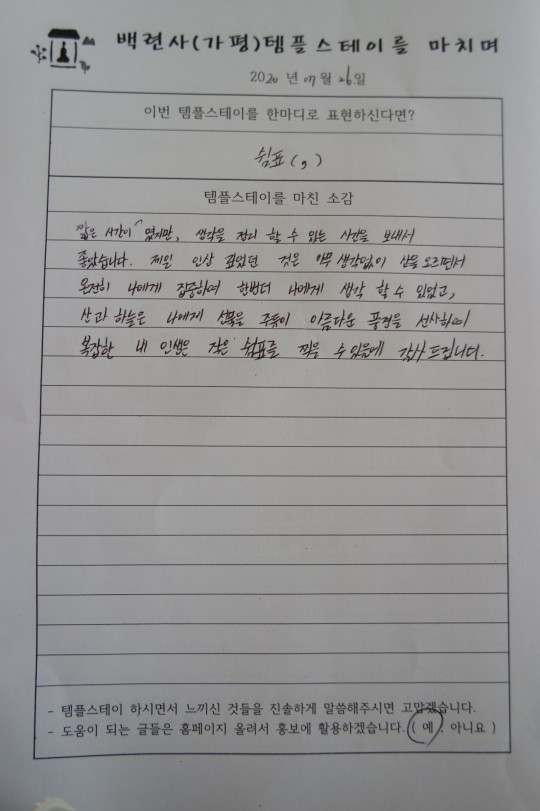 백련사(가평)템플스테이를 마치며
2020 년 07 월 26일
이번 템플스테이를 한마디로 표현하신다면?
쉼표(,)
템플스테이를 마친 소감
짧은 시간이였지만, 생각을 정리 할 수 있는 시간을 보내서
좋았습니다. 제일 인상 깊었던 것은 아무 생각없이 산을 오르면서
온전히 나에게 집중하며 한번더 나에게 생각 할 수 있었고,
산과 하늘은 나에게 선물을 주듯이 아름다운 풍경을 선사하며
복잡한 내 인생은 작은 쉼표를 찍을 수 있음에 감사 드립니다.
- 템플스테이 하시면서 느끼신 것들을 진솔하게 말씀해주시면 고맙겠습니다.
- 도움이 되는 글들은 홈페이지 올려서 홍보에 활용하겠습니다. ( 예 , 아니요 )